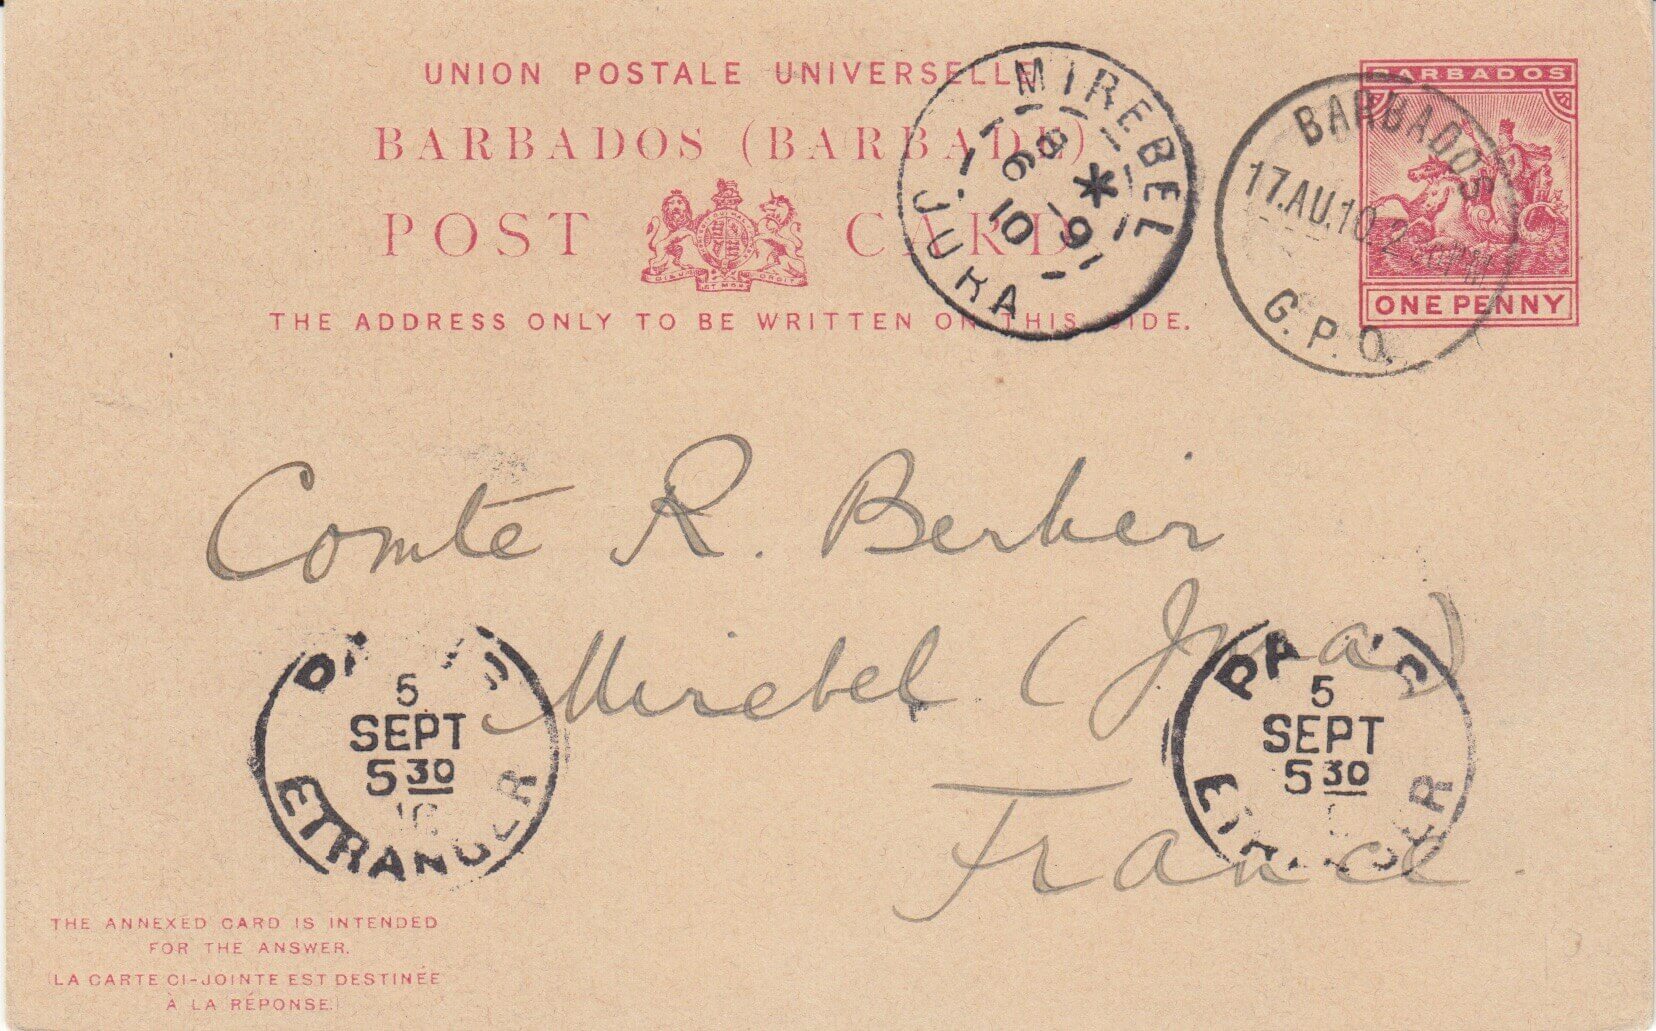 UNION POSTALE UNIVERSELLE
BARBADOS (BARBADE)
POST CARD
THE ADDRESS ONLY TO BE WRITTEN ON THIS SIDE.
BARBADOS
ONE PENNY
BARBADOS
17.AU.10.2 PM
G.P.O.
MIREBEL
6 9 10
JURA
Comte R. Berbier
Mirebel (Jura)
France.
PARIS
5
SEPT
5 30
10
ETRANGER
PARIS
5
SEPT
5 30
ETRANGER
THE ANNEXED CARD IS INTENDED
FOR THE ANSWER.
(LA CARTE CI-JOINTE EST DESTINÉE
À LA RÉPONSE.)